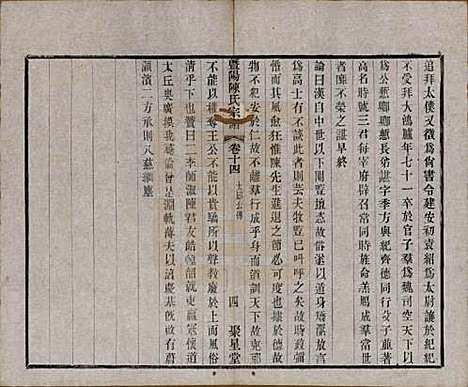 追拜太僕又徵爲尙書令建安初袁紹爲太尉讓於紀紀
不受拜大鴻臚年七十一卒於官子羣爲魏司空天下以
爲公慙卿卿慙長弟諶字季方與紀齊德同行父子並著
高名時號三君每宰府辟召常同時旌命羔鴈成羣當世
者靡不榮之諶早終
論曰漢自中世以下閹豎擅恣故俗遂以遁身矯絜放言
爲高士有不談此者則芸夫牧豎已叫呼之矣故時政彌
惛而其風愈往惟陳先生進退之節必可度也據於德故
物不犯安於仁故不離羣行成乎身而道訓天下故凶邪
不能以權奪王公不能以貴驕所以聲敎廢於上而風俗
清乎下也贊曰二李師淑陳君友皓韓韶就吏嬴寇懷道
太丘奧廣模我彝倫曾是淵軌薄夫以淳慶基旣啟有蔚
潁濱二方承則八慈繼塵
暨陽陳氏宗譜
卷十四
太丘公傳
四
聚星堂